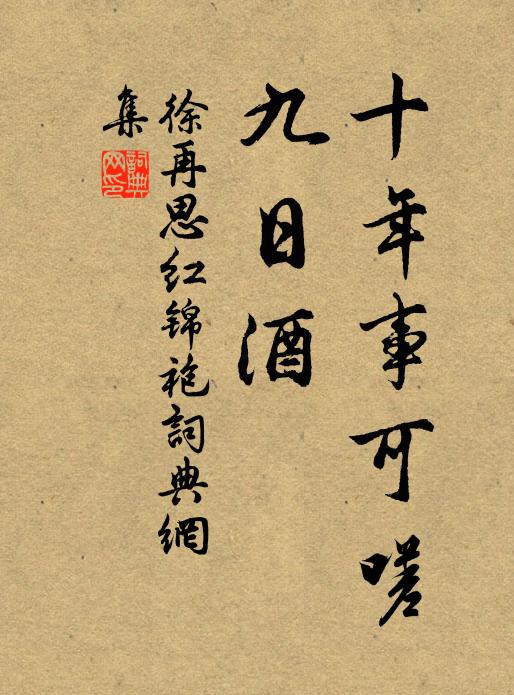 十年事可嗟
九日酒
徐再思红锦袍詞典網
集
詞典網印